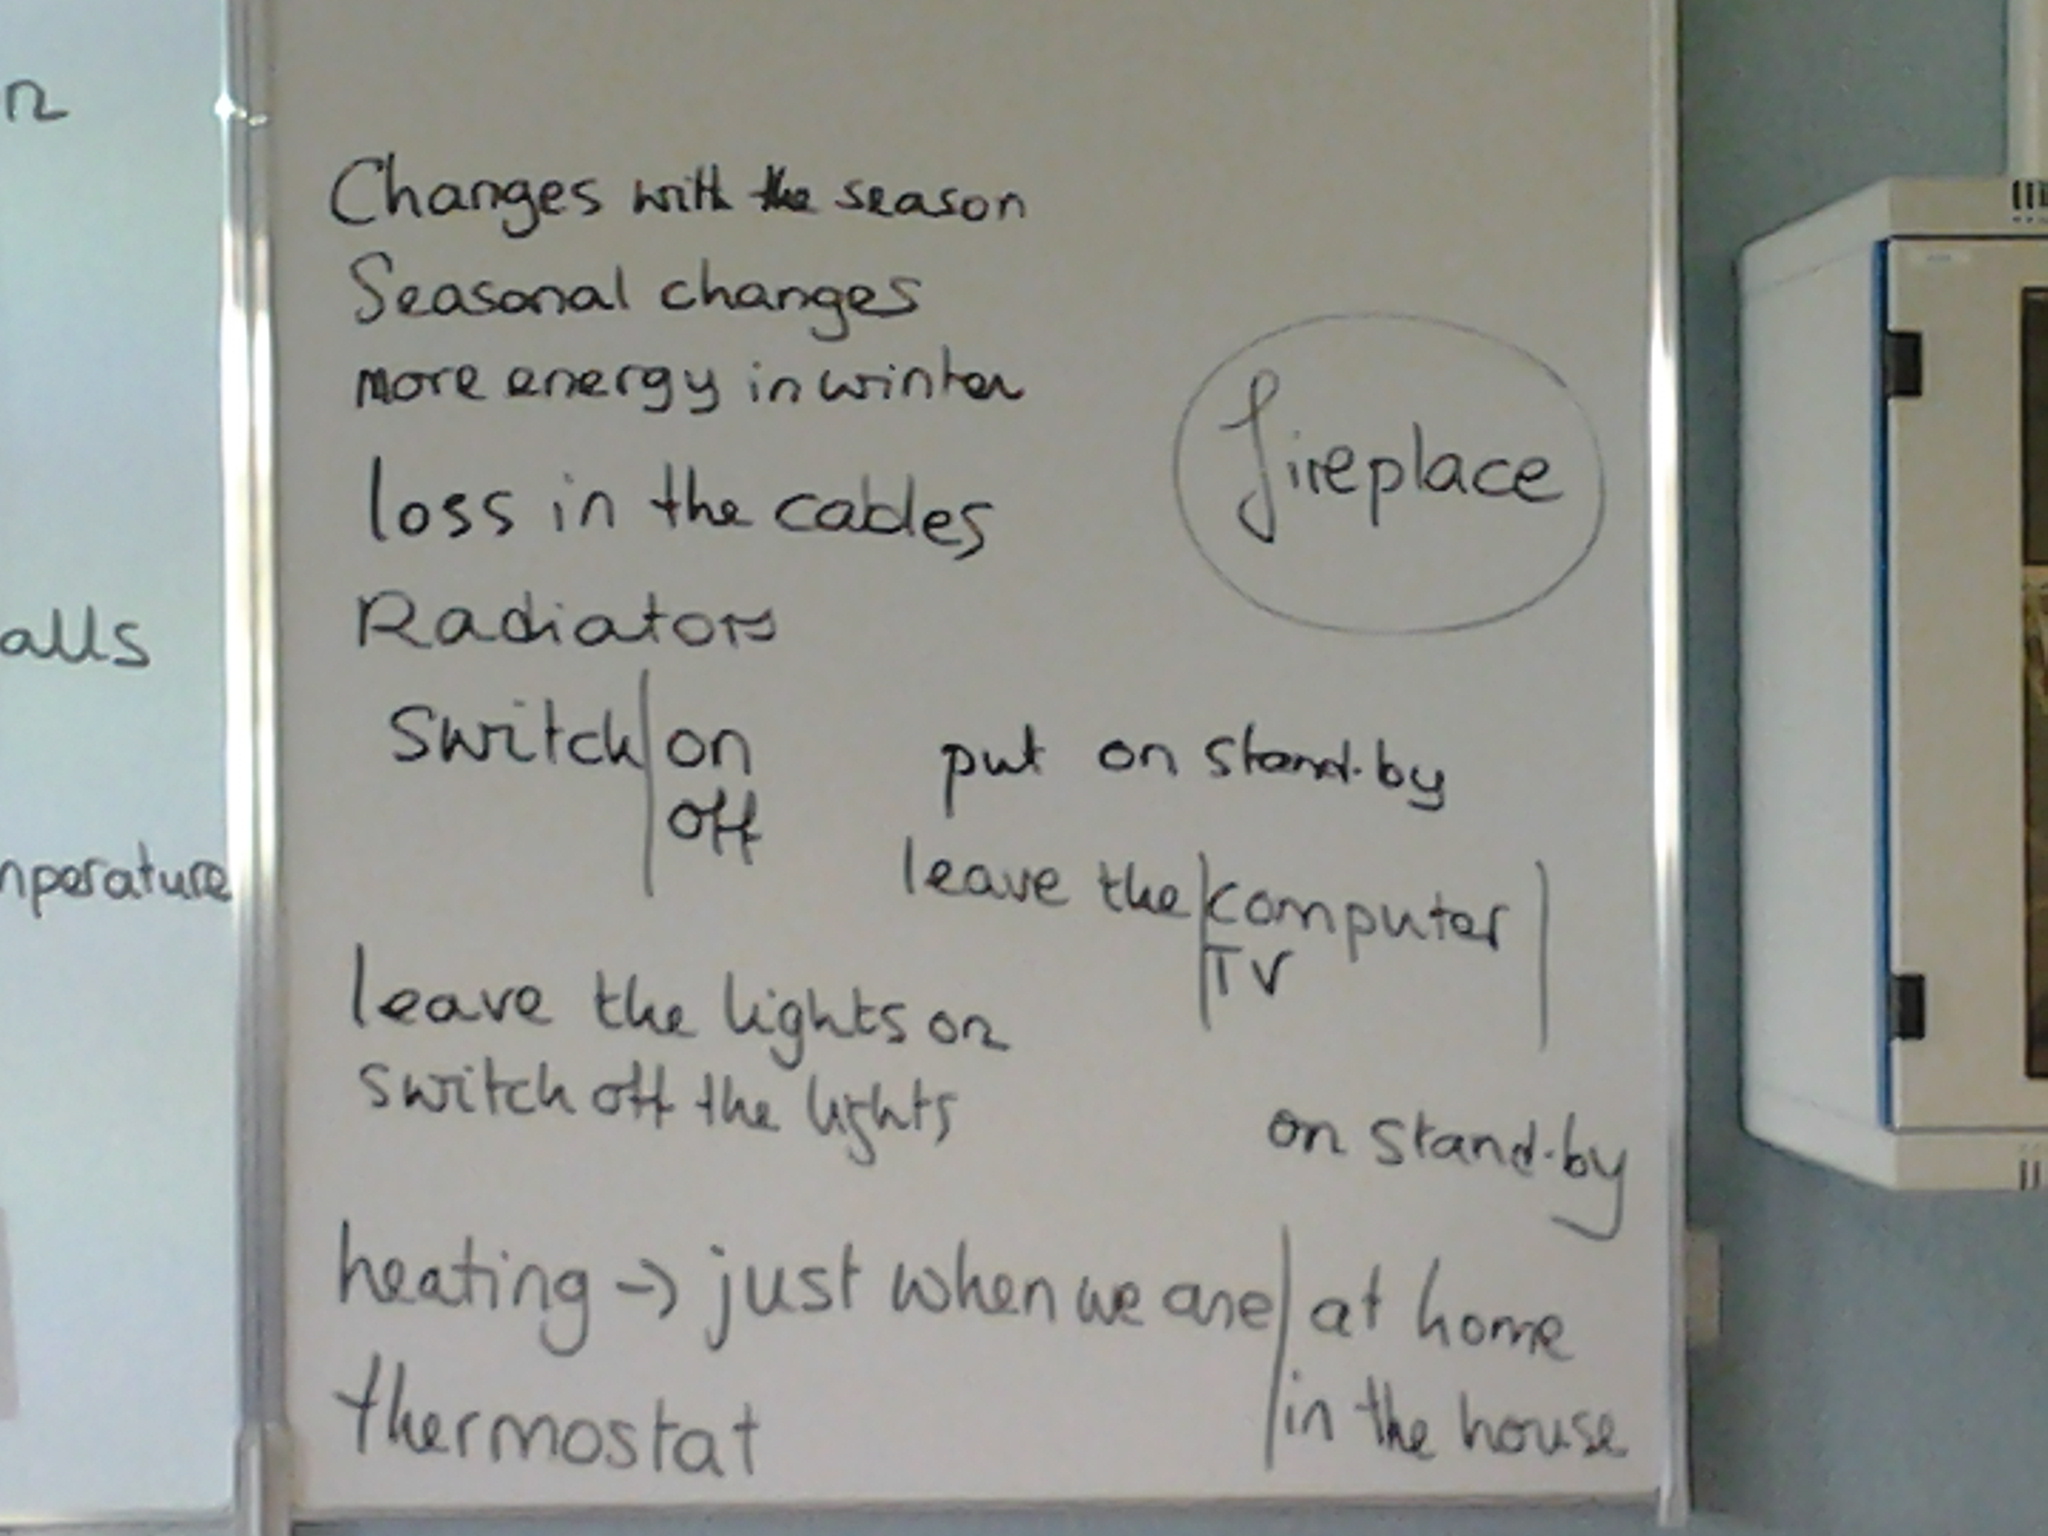 n
alls
nperature
Changes with the season
Seasonal changes
more energy in winter
loss in the cables
fireplace
Radiators
Switch on
off
put on stand-by
leave the computer
TV
on stand-by
leave the lights on
switch off the lights
heating → just when we are at home
in the house
thermostat